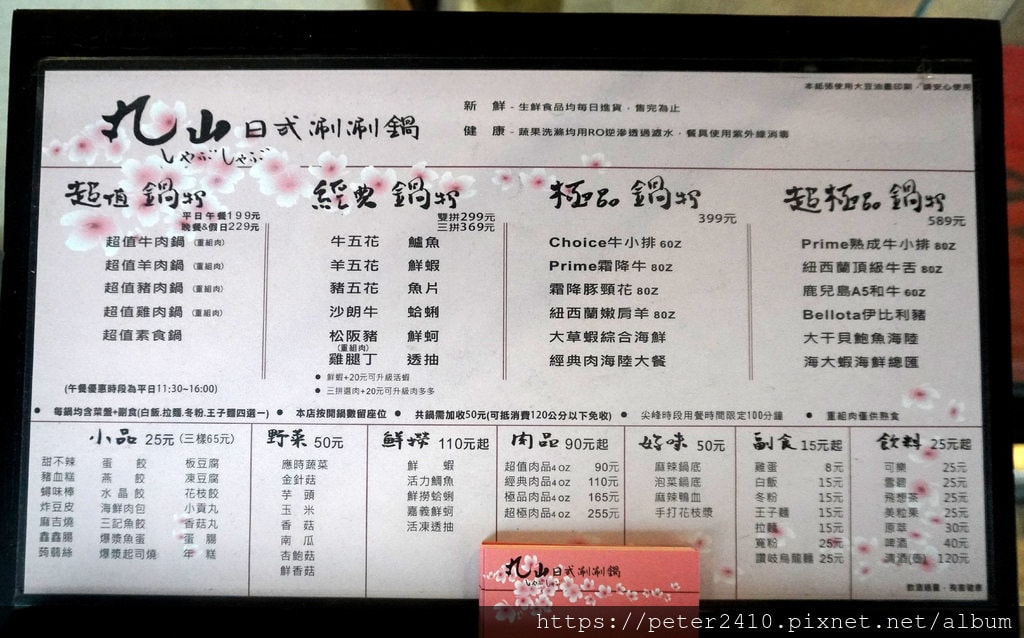 本紙張使用大豆油墨印刷／請安心使用
丸山 日式涮涮鍋
しゃぶしゃぶ
新 鮮 - 生鮮食品均每日進貨，售完為止
健 康 - 蔬果洗滌均用RO逆滲透過濾水，餐具使用紫外線消毒
超值 鍋物
平日午餐199元
晚餐&假日229元
超值牛肉鍋(重組肉)
超值羊肉鍋(重組肉)
超值豬肉鍋(重組肉)
超值雞肉鍋(重組肉)
超值素食鍋
(午餐優惠時段為平日11:30~16:00)
經典 鍋物
雙拼299元
三拼369元
牛五花 鱸魚
羊五花 鮮蝦
豬五花 魚片
沙朗牛 蛤蜊
松阪豬 鮮蚵
(重組肉)
雞腿丁 透抽
● 鮮蝦+20元可升級活蝦
● 三拼選肉+20元可升級肉多多
極品 鍋物
399元
Choice牛小排 6OZ
Prime霜降牛 8OZ
霜降豚頸花 8OZ
紐西蘭嫩肩羊 8OZ
大草蝦綜合海鮮
經典肉海陸大餐
超極品 鍋物
589元
Prime熟成牛小排 8OZ
紐西蘭頂級牛舌 8OZ
鹿兒島A5和牛 6OZ
Bellota伊比利豬
大干貝鮑魚海陸
海大蝦海鮮總匯
● 每鍋均含菜盤+副食(白飯.拉麵.冬粉.王子麵四選一) ● 本店按開鍋數留座位 ● 共鍋需加收50元(可抵消費120公分以下免收) ● 尖峰時段用餐時間限定100分鐘 ● 重組肉僅供熟食
小品 25元 (三樣65元)
甜不辣 蛋 餃 板豆腐
豬血糕 燕 餃 凍豆腐
蟳味棒 水晶餃 花枝餃
炸豆皮 海鮮肉包 小貢丸
麻吉燒 三記魚餃 香菇丸
鑫鑫腸 爆漿魚蛋 蛋 腸
蒟蒻絲 爆漿起司燒 年 糕
野菜 50元
應時蔬菜
金針菇
芋 頭
玉 米
香 菇
南 瓜
杏鮑菇
鮮香菇
鮮撈 110元起
鮮 蝦
活力鯛魚
鮮撈蛤蜊
嘉義鮮蚵
活凍透抽
肉品 90元起
超值肉品4 OZ 90元
經典肉品4 OZ 110元
極品肉品4 OZ 165元
超極品肉品4 OZ 255元
好味 50元
麻辣鍋底
泡菜鍋底
麻辣鴨血
手打花枝漿
副食 15元起
雞蛋 8元
白飯 15元
冬粉 15元
王子麵 15元
拉麵 15元
寬粉 25元
讚岐烏龍麵 25元
飲料 25元起
可樂 25元
雪碧 25元
飛想茶 25元
美粒果 25元
原萃 30元
啤酒 40元
清酒(壺) 120元
飲酒過量，有害健康
丸山 日式涮涮鍋
しゃぶしゃぶ
https://peter2410.pixnet.net/album